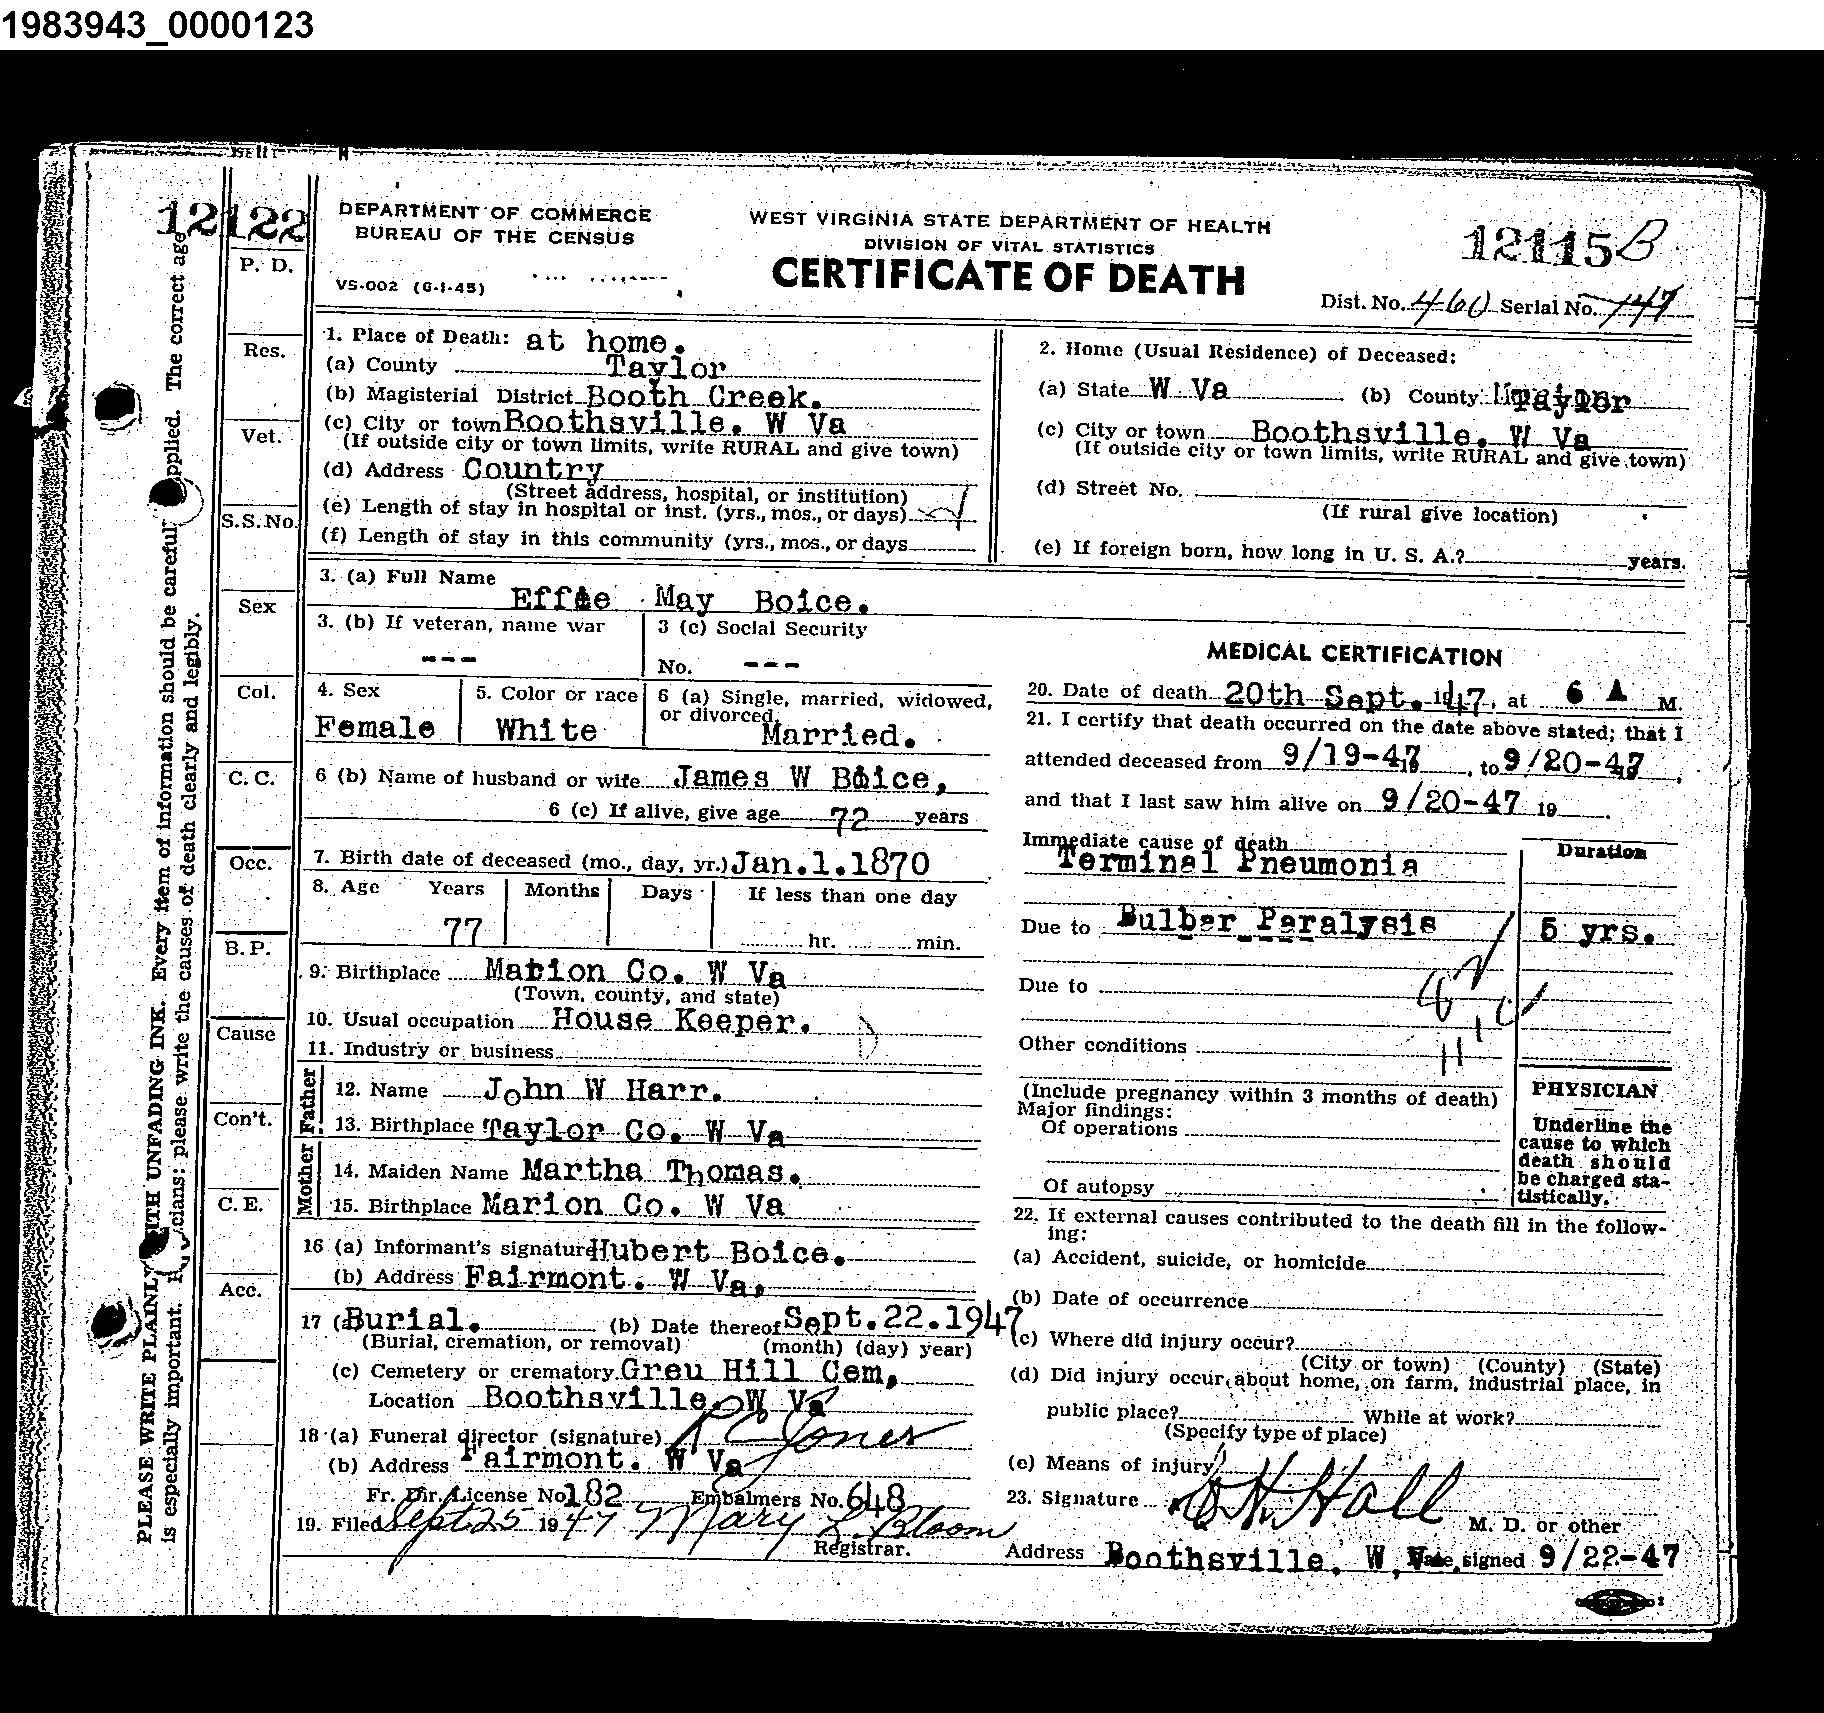 1983943_0000123
12122
DEPARTMENT OF COMMERCE
BUREAU OF THE CENSUS
VS-002 (6-1-45)
WEST VIRGINIA STATE DEPARTMENT OF HEALTH
DIVISION OF VITAL STATISTICS
CERTIFICATE OF DEATH
12115B
Dist. No. 460 Serial No. 147
PLEASE WRITE PLAINLY WITH UNFADING INK. Every item of information should be carefully supplied. The correct age
is especially important. please write the causes of death clearly and legibly.
P. D.
Res.
Vet.
S.S.No.
Sex
Col.
C. C.
Occ.
B. P.
Cause
Con't.
C. E.
Acc.
1. Place of Death: at home.
(a) County Taylor
(b) Magisterial District Booth Creek.
(c) City or town Boothsville. W Va
(If outside city or town limits, write RURAL and give town)
(d) Address Country
(Street address, hospital, or institution)
(e) Length of stay in hospital or inst. (yrs., mos., or days)
(f) Length of stay in this community (yrs., mos., or days
2. Home (Usual Residence) of Deceased:
(a) State W Va (b) County Taylor
(c) City or town Boothsville. W Va
(If outside city or town limits, write RURAL and give town)
(d) Street No.
(If rural give location)
(e) If foreign born, how long in U. S. A.? years.
3. (a) Full Name
Effie May Boice.
3. (b) If veteran, name war
---
3 (c) Social Security
No. ---
4. Sex
Female
5. Color or race
White
6 (a) Single, married, widowed,
or divorced
Married.
6 (b) Name of husband or wife James W Boice,
6 (c) If alive, give age 72 years
7. Birth date of deceased (mo., day, yr.) Jan.1.1870
8. Age Years Months Days If less than one day
77 hr. min.
9. Birthplace Marion Co. W Va
(Town, county, and state)
10. Usual occupation House Keeper.
11. Industry or business
Father
12. Name John W Harr.
13. Birthplace Taylor Co. W Va
Mother
14. Maiden Name Martha Thomas.
15. Birthplace Marion Co. W Va
16 (a) Informant's signature Hubert Boice.
(b) Address Fairmont. W Va.
17 (a Burial. (b) Date thereof Sept.22.1947
(Burial, cremation, or removal) (month) (day) year)
(c) Cemetery or crematory Greu Hill Cem,
Location Boothsville. W Va
18 (a) Funeral director (signature) R C Jones
(b) Address Fairmont. W Va
Fr. Dir. License No 182 Embalmers No. 648
19. Filed Sept 25 1947 Mary L. Bloom
Registrar.
MEDICAL CERTIFICATION
20. Date of death 20th Sept. 1947, at 6 A M.
21. I certify that death occurred on the date above stated; that I
attended deceased from 9/19-47, to 9/20-47,
and that I last saw him alive on 9/20-47 19 .
Immediate cause of death
Terminal Pneumonia
Duration
Due to Bulber Paralysis 5 yrs.
Due to
Other conditions
(Include pregnancy within 3 months of death)
Major findings:
Of operations
Of autopsy
PHYSICIAN
Underline the
cause to which
death should
be charged sta-
tistically.
22. If external causes contributed to the death fill in the follow-
ing:
(a) Accident, suicide, or homicide
(b) Date of occurrence
(c) Where did injury occur?
(City or town) (County) (State)
(d) Did injury occur about home, on farm, industrial place, in
public place? While at work?
(Specify type of place)
(e) Means of injury
23. Signature Hall
M. D. or other
Address Boothsville. W Va. Date signed 9/22-47